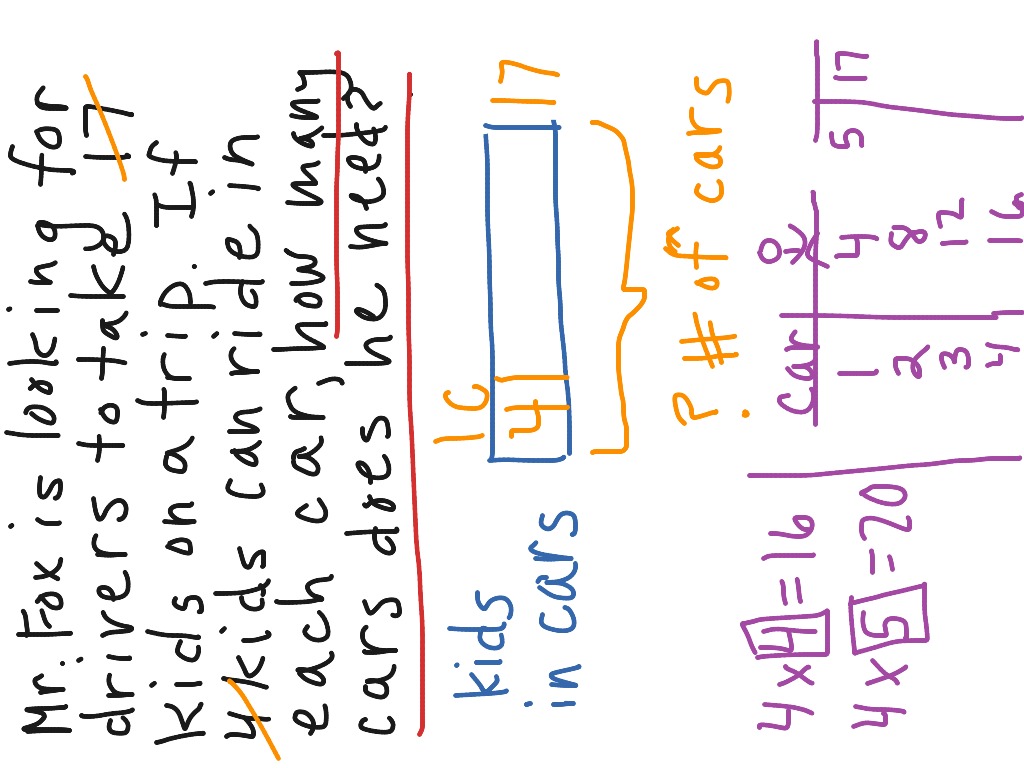 Mr. Fox is looking for
drivers to take 17
kids on a trip. If
4 kids can ride in
each car, how many
cars does he need?
16
kids
in cars
4
17
? # of cars
4 x 4 = 16
4 x 5 = 20
Car
1 4
2 8
3 12
4 16
5 17